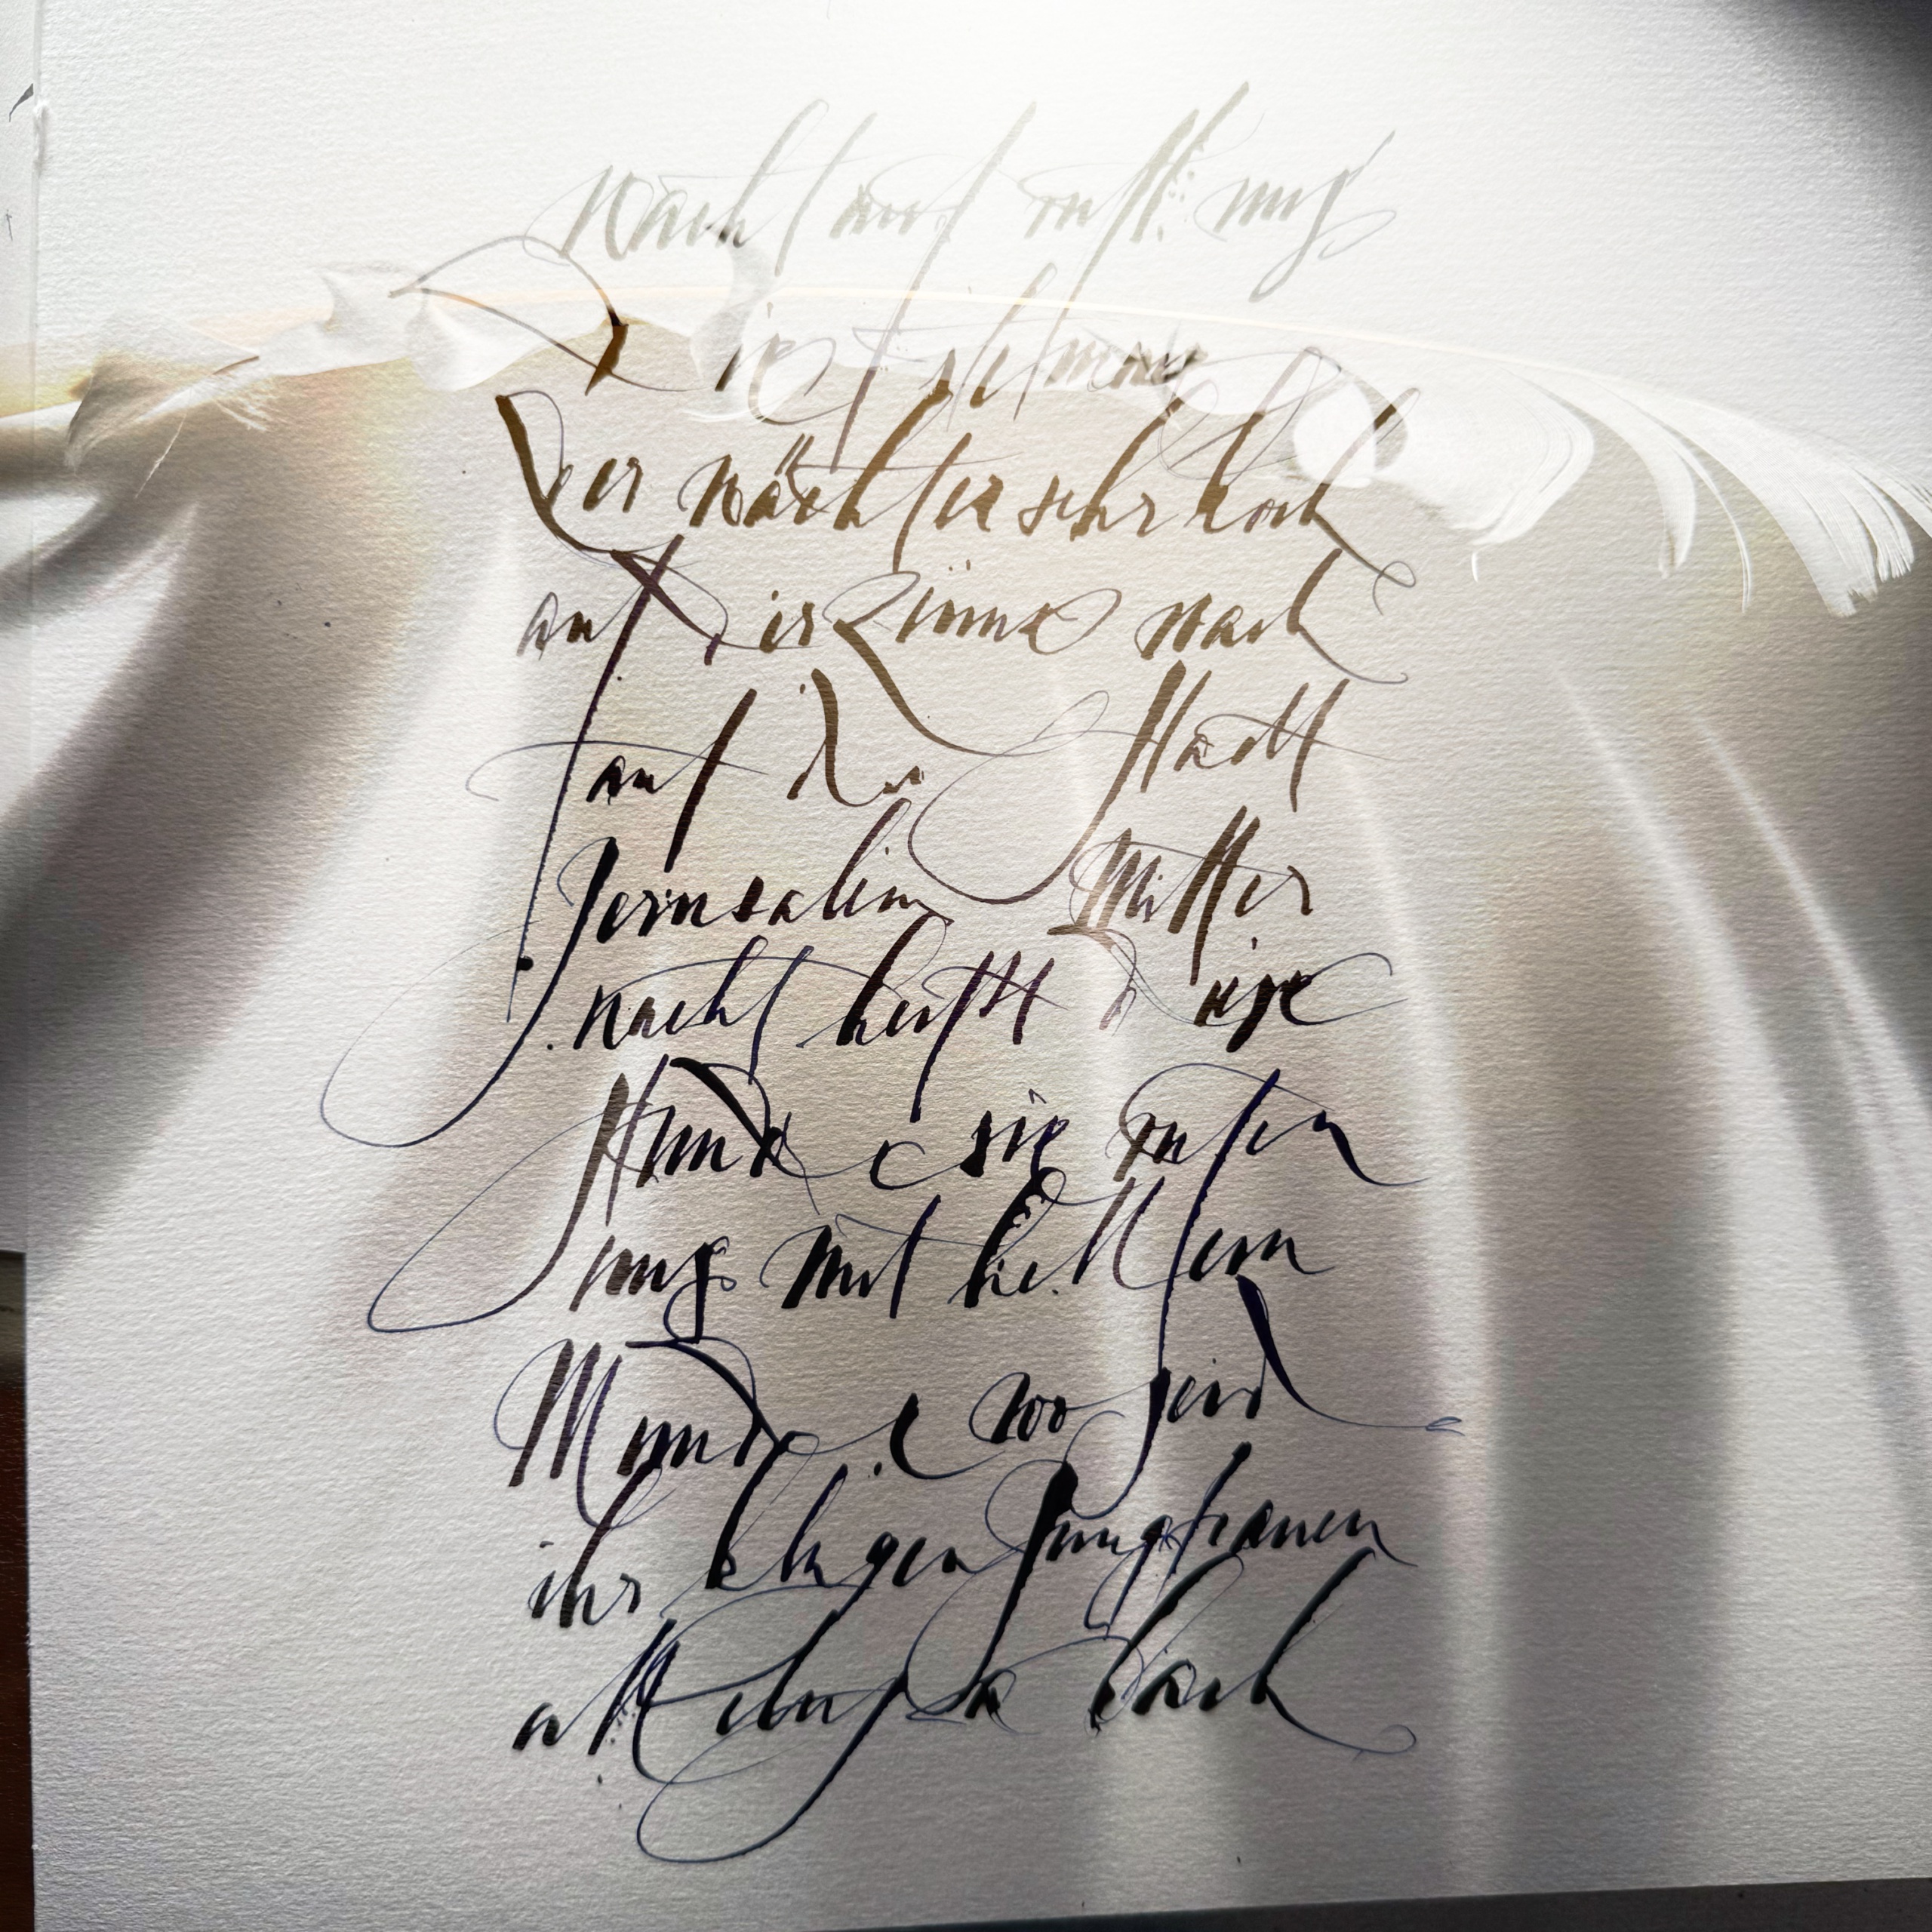 wacht auf ruft uns
Die stimme
Der wächter sehr hoch
auf der Zinne wach
auf du Stadt
Jerusalem Mitter
nacht heißt diese
Stunde sie rufen
uns mit hellem
Munde wo seid
ihr klugen Jungfrauen
alleluja bach